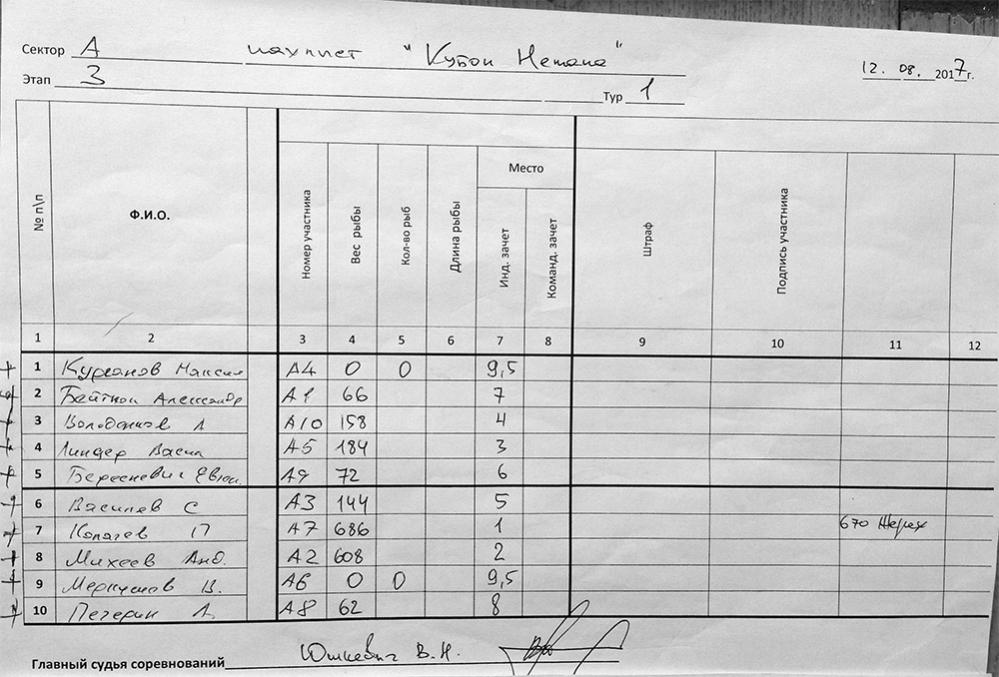 Сектор А "Кубок Немана"
12. 08. 2017г.
Этап 3 Тур 1
№ п\п Ф.И.О. Номер участника Вес рыбы Кол-во рыб Длина рыбы Место Инд. зачет Команд. зачет Штраф Подпись участника
1 2 3 4 5 6 7 8 9 10 11 12
1 Курганов Максим А4 0 0 9,5
2 Александр А1 66 7
3 А10 158 4
4 Линдер Васил А5 184 3
5 Бересневич Евген. А9 72 6
6 Василев С А3 144 5
7 П А7 686 1 670 Жерех
8 Михеев Анд. А2 608 2
9 Меркушов В. А6 0 0 9,5
10 Печерин А. А8 62 8
Главный судья соревнований Юшкевич В.Н.